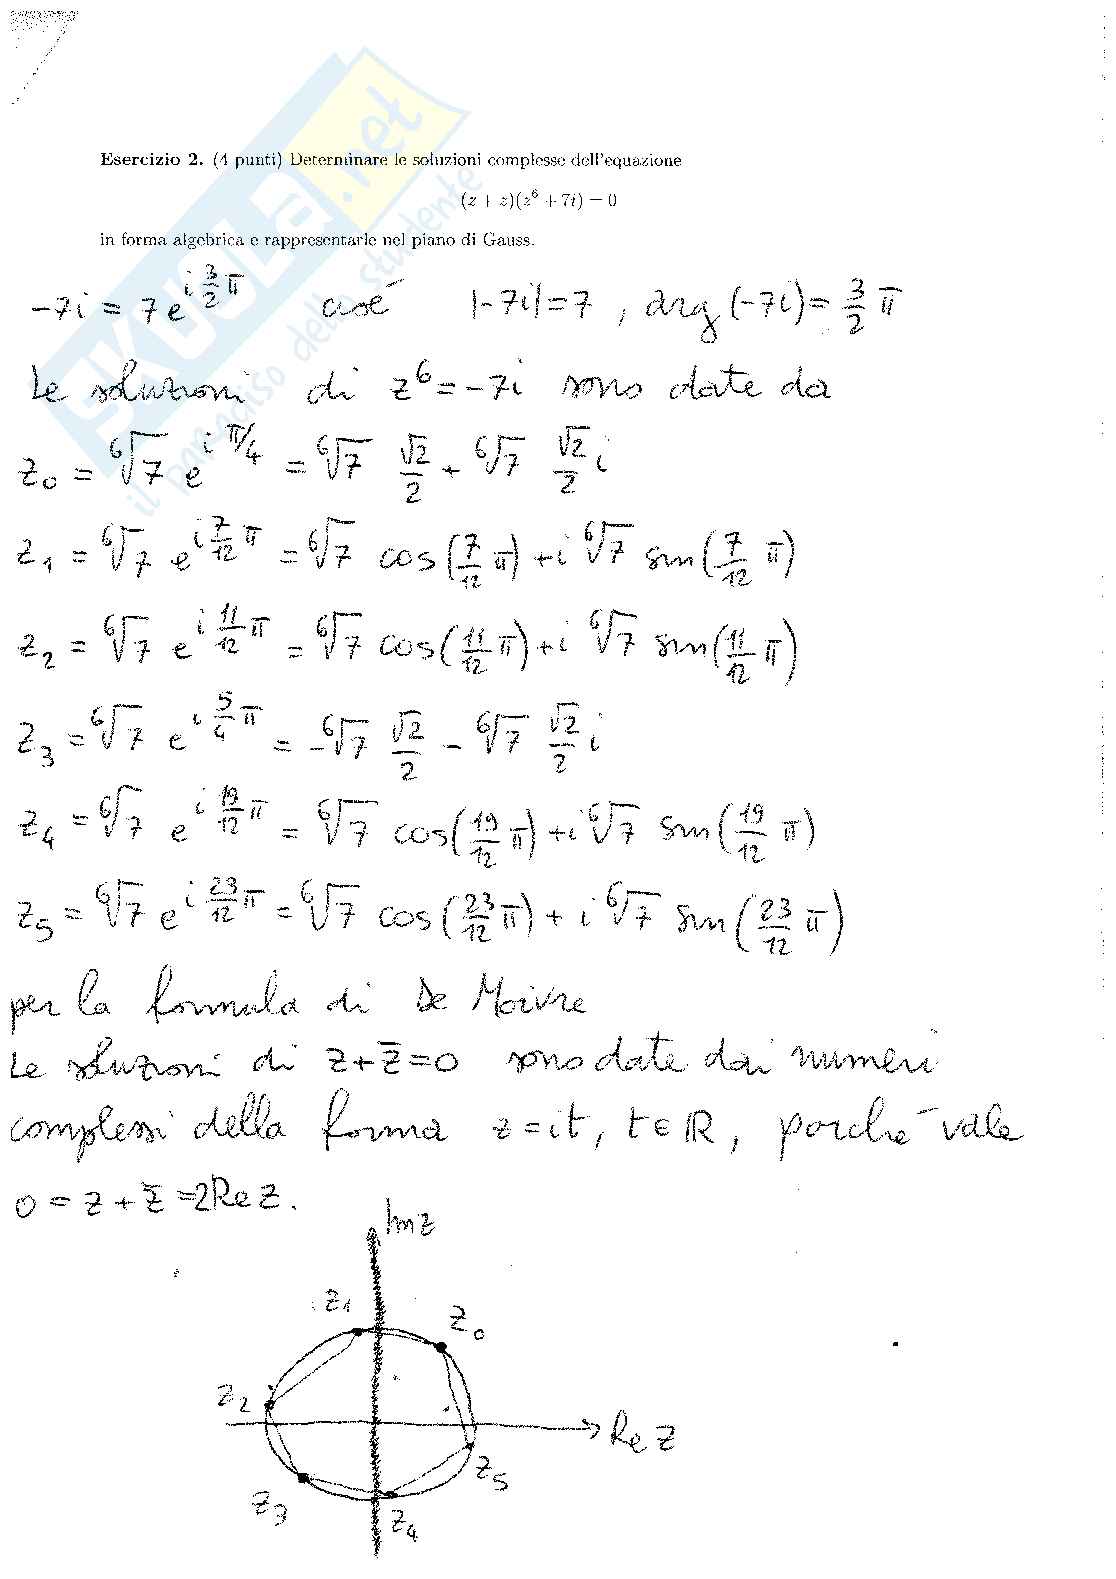 SKUOLA.net
il paradiso dello studente
Esercizio 2. (4 punti) Determinare le soluzioni complesse dell'equazione
(z + z)(z⁶ + 7i) = 0
in forma algebrica e rappresentarle nel piano di Gauss.
-7i = 7 e^{i 3/2 π} cioè |-7i|=7 , arg(-7i)= 3/2 π
Le soluzioni di z⁶=-7i sono date da
z₀ = ⁶√7 e^{i π/4} = ⁶√7 √2/2 + ⁶√7 √2/2 i
z₁ = ⁶√7 e^{i 7/12 π} = ⁶√7 cos(7/12 π) + i ⁶√7 sin(7/12 π)
z₂ = ⁶√7 e^{i 11/12 π} = ⁶√7 cos(11/12 π) + i ⁶√7 sin(11/12 π)
z₃ = ⁶√7 e^{i 5/4 π} = -⁶√7 √2/2 - ⁶√7 √2/2 i
z₄ = ⁶√7 e^{i 19/12 π} = ⁶√7 cos(19/12 π) + i ⁶√7 sin(19/12 π)
z₅ = ⁶√7 e^{i 23/12 π} = ⁶√7 cos(23/12 π) + i ⁶√7 sin(23/12 π)
per la formula di De Moivre
Le soluzioni di z+z̄=0 sono date dai numeri
complessi della forma z=it, t∈ℝ, perché vale
0 = z + z̄ =2Re z.
Im z
z₁
z₀
z₂
Re z
z₅
z₃
z₄